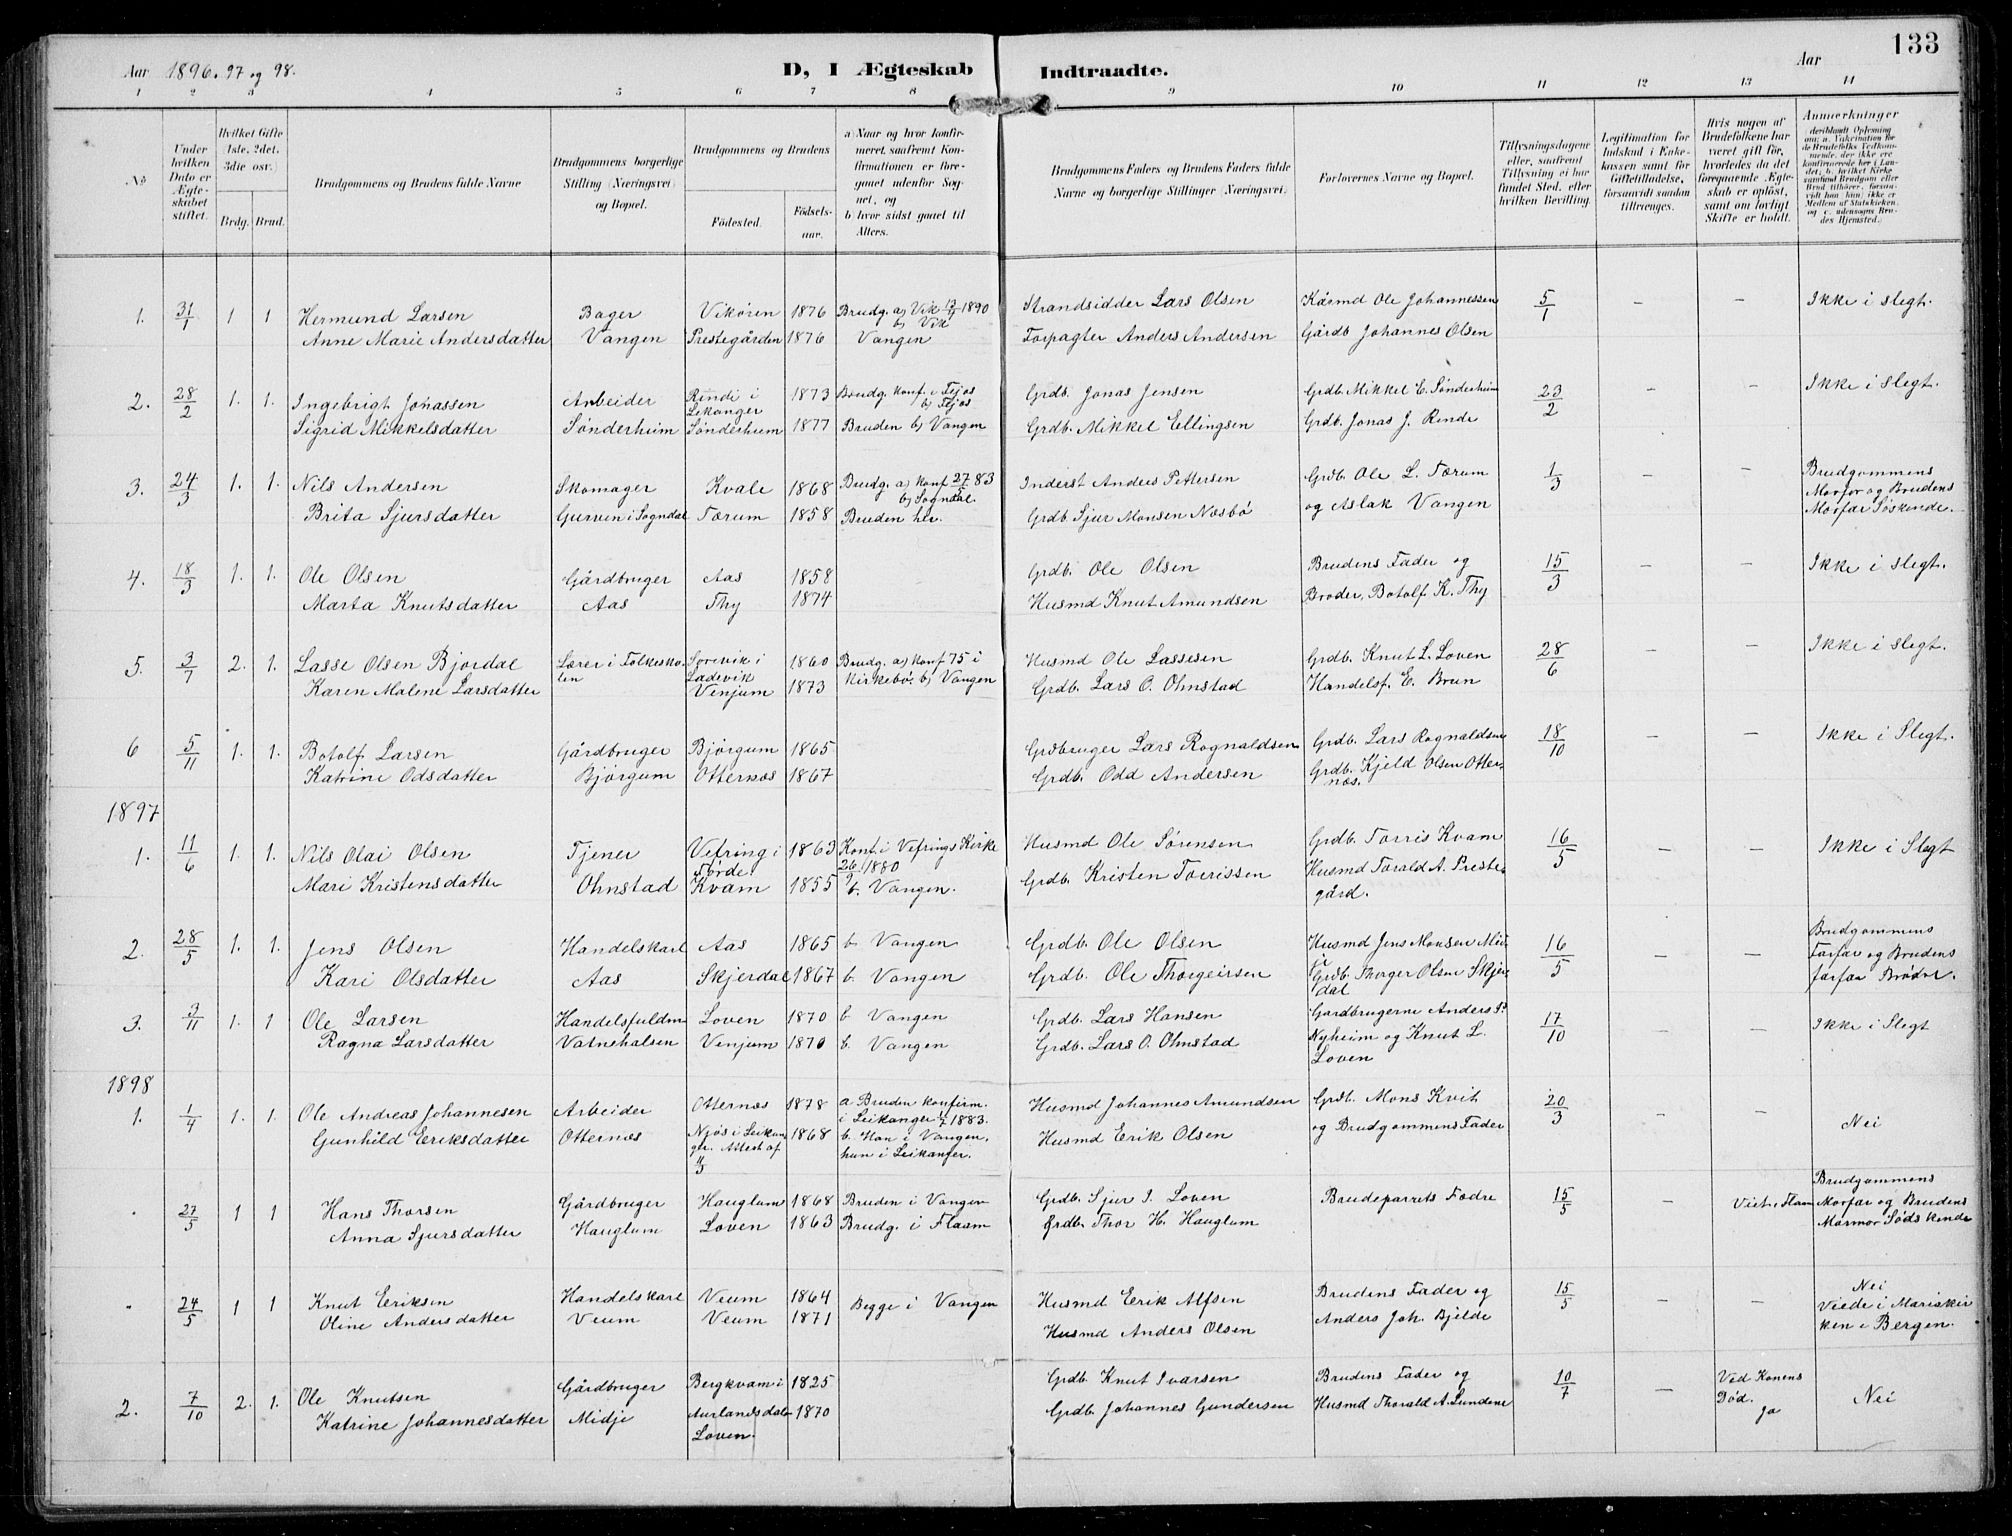 133
Aar 1896. 97 og 98.
D, I Ægteskab Indtraadte.
Aar
1 2 3 4 5 6 7 8 9 10 11 12 13 14
No
Under hvilken Dato er Ægteskabet stiftet.
Hvilket Gifte 1ste, 2det, 3die osv.
Brdg. Brud.
Brudgommens og Brudens fulde Navne
Brudgommens borgerlige Stilling (Næringsvei) og Bopæl.
Brudgommens og Brudens
Fødested.
Fødselsaar.
a) Naar og hvor konfirmeret, saafremt Konfirmationen er foregaaet udenfor Sognet, og
b) hvor sidst gaaet til Alters.
Brudgommens Faders og Brudens Faders fulde Navne og borgerlige Stillinger (Næringsvei).
Forlovernes Navne og Bopæl.
Tillysningsdagene eller, saafremt Tillysning ei har fundet Sted, efter hvilken Bevilling.
Legitimation for Indskud i Enkekassen samt for Giftetilladelse, forsaavidt saadan tiltrænges.
Hvis nogen af Brudefolkene har været gift før, hvorledes da det foregaaende Ægteskab er opløst, samt om lovligt Skifte er holdt.
Anmerkninger
1. 31/1 1 1 Hermund Larsen Bager Vikøren 1876 Brudg. a) Vik 13/7 1890 b) Vik Strandsidder Lars Olsen Kårmd Ole Johannessen 5/1 – – Ikke i slegt.
Anne Marie Andersdatter Vangen Prestegården 1876 Vangen Forpagter Anders Andersen Gårdb. Johannes Olsen
2. 28/2 1. 1. Ingebrigt Jonassen Arbeider Rindi i Lekanger 1873 Brudg. konf. i Fejos b) Fejos Grdb. Jonas Jensen Grdb. Mikkel E. Sønderheim 23/2 – – Ikke i slegt.
Sigrid Mikkelsdatter Sønderheim Sønderheim 1877 Bruden b) Vangen Grdb. Mikkel Ellingsen Grdb. Jonas J. Rinde
3. 24/3 1. 1. Nils Andersen Skomager Kvale 1868 Brudg. a) konf 27/5 83 b) Sogndal. Inderst Anders Pettersen Grdb. Ole L. Tærum 1/3 – – Brudgommens Morfar og Brudens Morfar Søskende.
Brita Sjursdatter Gurven i Sogndal Tærum 1858 Bruden her. Grdb. Sjur Monsen Næsbø og Aslak Vangen
4. 18/3 1. 1. Ole Olsen Gårdbruger Aas 1858 Grdb. Ole Olsen Brudens Fader og 15/3 – – Ikke i slegt.
Marta Knutsdatter Aas Thy 1874 Husmd Knut Amundsen Broder, Botolf K. Thy
5. 3/7 2. 1. Lasse Olsen Bjordal Lærer i Folkeskolen Sørevik i Ladevik 1860 Brudg. a) konf 75 i Kirkebø. b) Vangen Husmd Ole Lassesen Grdb. Knut L. Loven 28/6 – – Ikke i slegt.
Karen Malene Larsdatter Venjum 1873 Grdb. Lars O. Ohnstad Handelsf. E. Brun
6 5/11 1. 1. Botolf Larsen Gårdbruger Bjørgum 1865 Grdbruger Lars Rognaldsen Grdb. Lars Rognaldsen 18/10 – – Ikke i Slegt.
Katrine Odsdatter Bjørgum Otternæs 1867 Grdb. Odd Andersen Grdb. Kjeld Olsen Otternæs.
1897
1. 11/6 1. 1. Nils Olai Olsen Tjener Vefring i Førde 1863 Konf i Vefrings Kirke 26/9 1880 Husmd Ole Sørensen Grdb. Torris Kvam 16/5 – – Ikke i Slegt
Mari Kristensdatter Ohnstad Kvam 1855 b. Vangen. Grdb. Kristen Torrissen Husmd Torald A. Prestegård.
2. 28/5 1. 1. Jens Olsen Handelskarl Aas 1865 b Vangen Grdb. Ole Olsen Husmd Jens Monsen Midje 16/5 – – Brudgommens Farfar og Brudens farfar Brødre.
Kari Olsdatter Aas Skjerdal 1867 b. Vangen Grdb. Ole Thorgeirsen Grdb. Thorger Olsen Skjerdal
3. 3/11 1. 1 Ole Larsen Handelsfuldm Loven 1870 b Vangen Grdb. Lars Hansen Gardbrugerne Anders P. 17/10 – – Ikke i Slegt
Ragna Larsdatter Vatnehalsen Venjum 1870 b. Vangen Grdb. Lars O. Ohnstad Nyheim og Knut L. Loven
1898
1. 1/4 1. 1. Ole Andreas Johannesen Arbeider Otternæs 1878 a Bruden konfirm. i Leikanger 1/7 1883. Husmd Johannes Amundsen Grdb. Mons Kvit 20/3 – – Nei
Gunhild Eriksdatter Otternæs Njøs i Leikanger. Attest af 11/3 1868 b. Han i Vangen, hun i Leikanger. Husmd Erik Olsen og Brudgommens Fader
" 27/5 1 1 Hans Thorsen Gårdbruger Hauglum 1868 Bruden i Vangen Grdb. Sjur I. Loven Brudeparrets Fædre 15/5 – Viet i Flaam Brudgommens Morfar og Brudens Mormor Sødskende
Anna Sjursdatter Hauglum Loven 1863 Brudg. i Flaam Grdb. Thor H. Hauglum
" 24/5 1 1 Knut Eriksen Handelskarl Veum 1864 Begge i Vangen Husmd Erik Alfsen Brudens Fader og 15/5 – – Nei Viede i Mariakirken i Bergen.
Oline Andersdatter Veum Veum 1871 Husmd Anders Olsen Anders Joh. Bjelde
2. 7/10 2. 1. Ole Knutsen Gårdbruger Bergkvam i Aurlandsdalen 1825 Grdb. Knut Ivarsen Brudens Fader og 10/7 – Ved Konens Død. Ja Nei
Katrine Johannesdatter Midje Loven 1870 Grdb. Johannes Gundersen Husmd Thorald A. Lundene